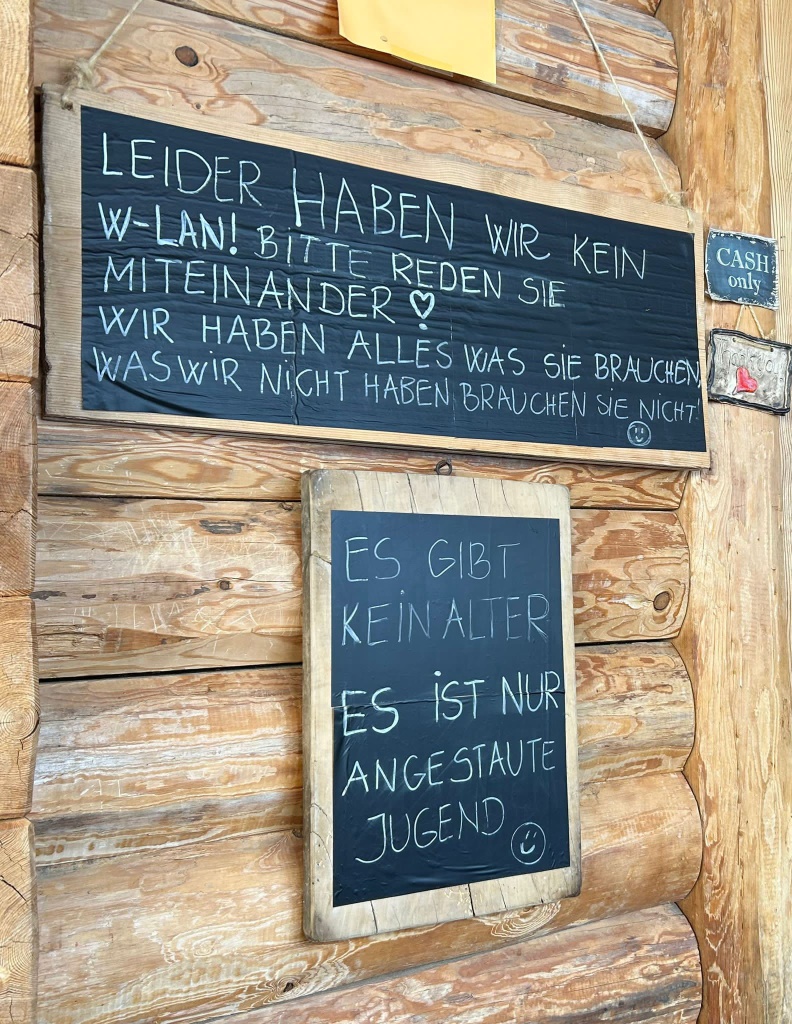 LEIDER HABEN WIR KEIN
W-LAN! BITTE REDEN SIE
MITEINANDER
WIR HABEN ALLES WAS SIE BRAUCHEN,
WAS WIR NICHT HABEN BRAUCHEN SIE NICHT!
CASH
only
ES GIBT
KEIN ALTER
ES IST NUR
ANGESTAUTE
JUGEND